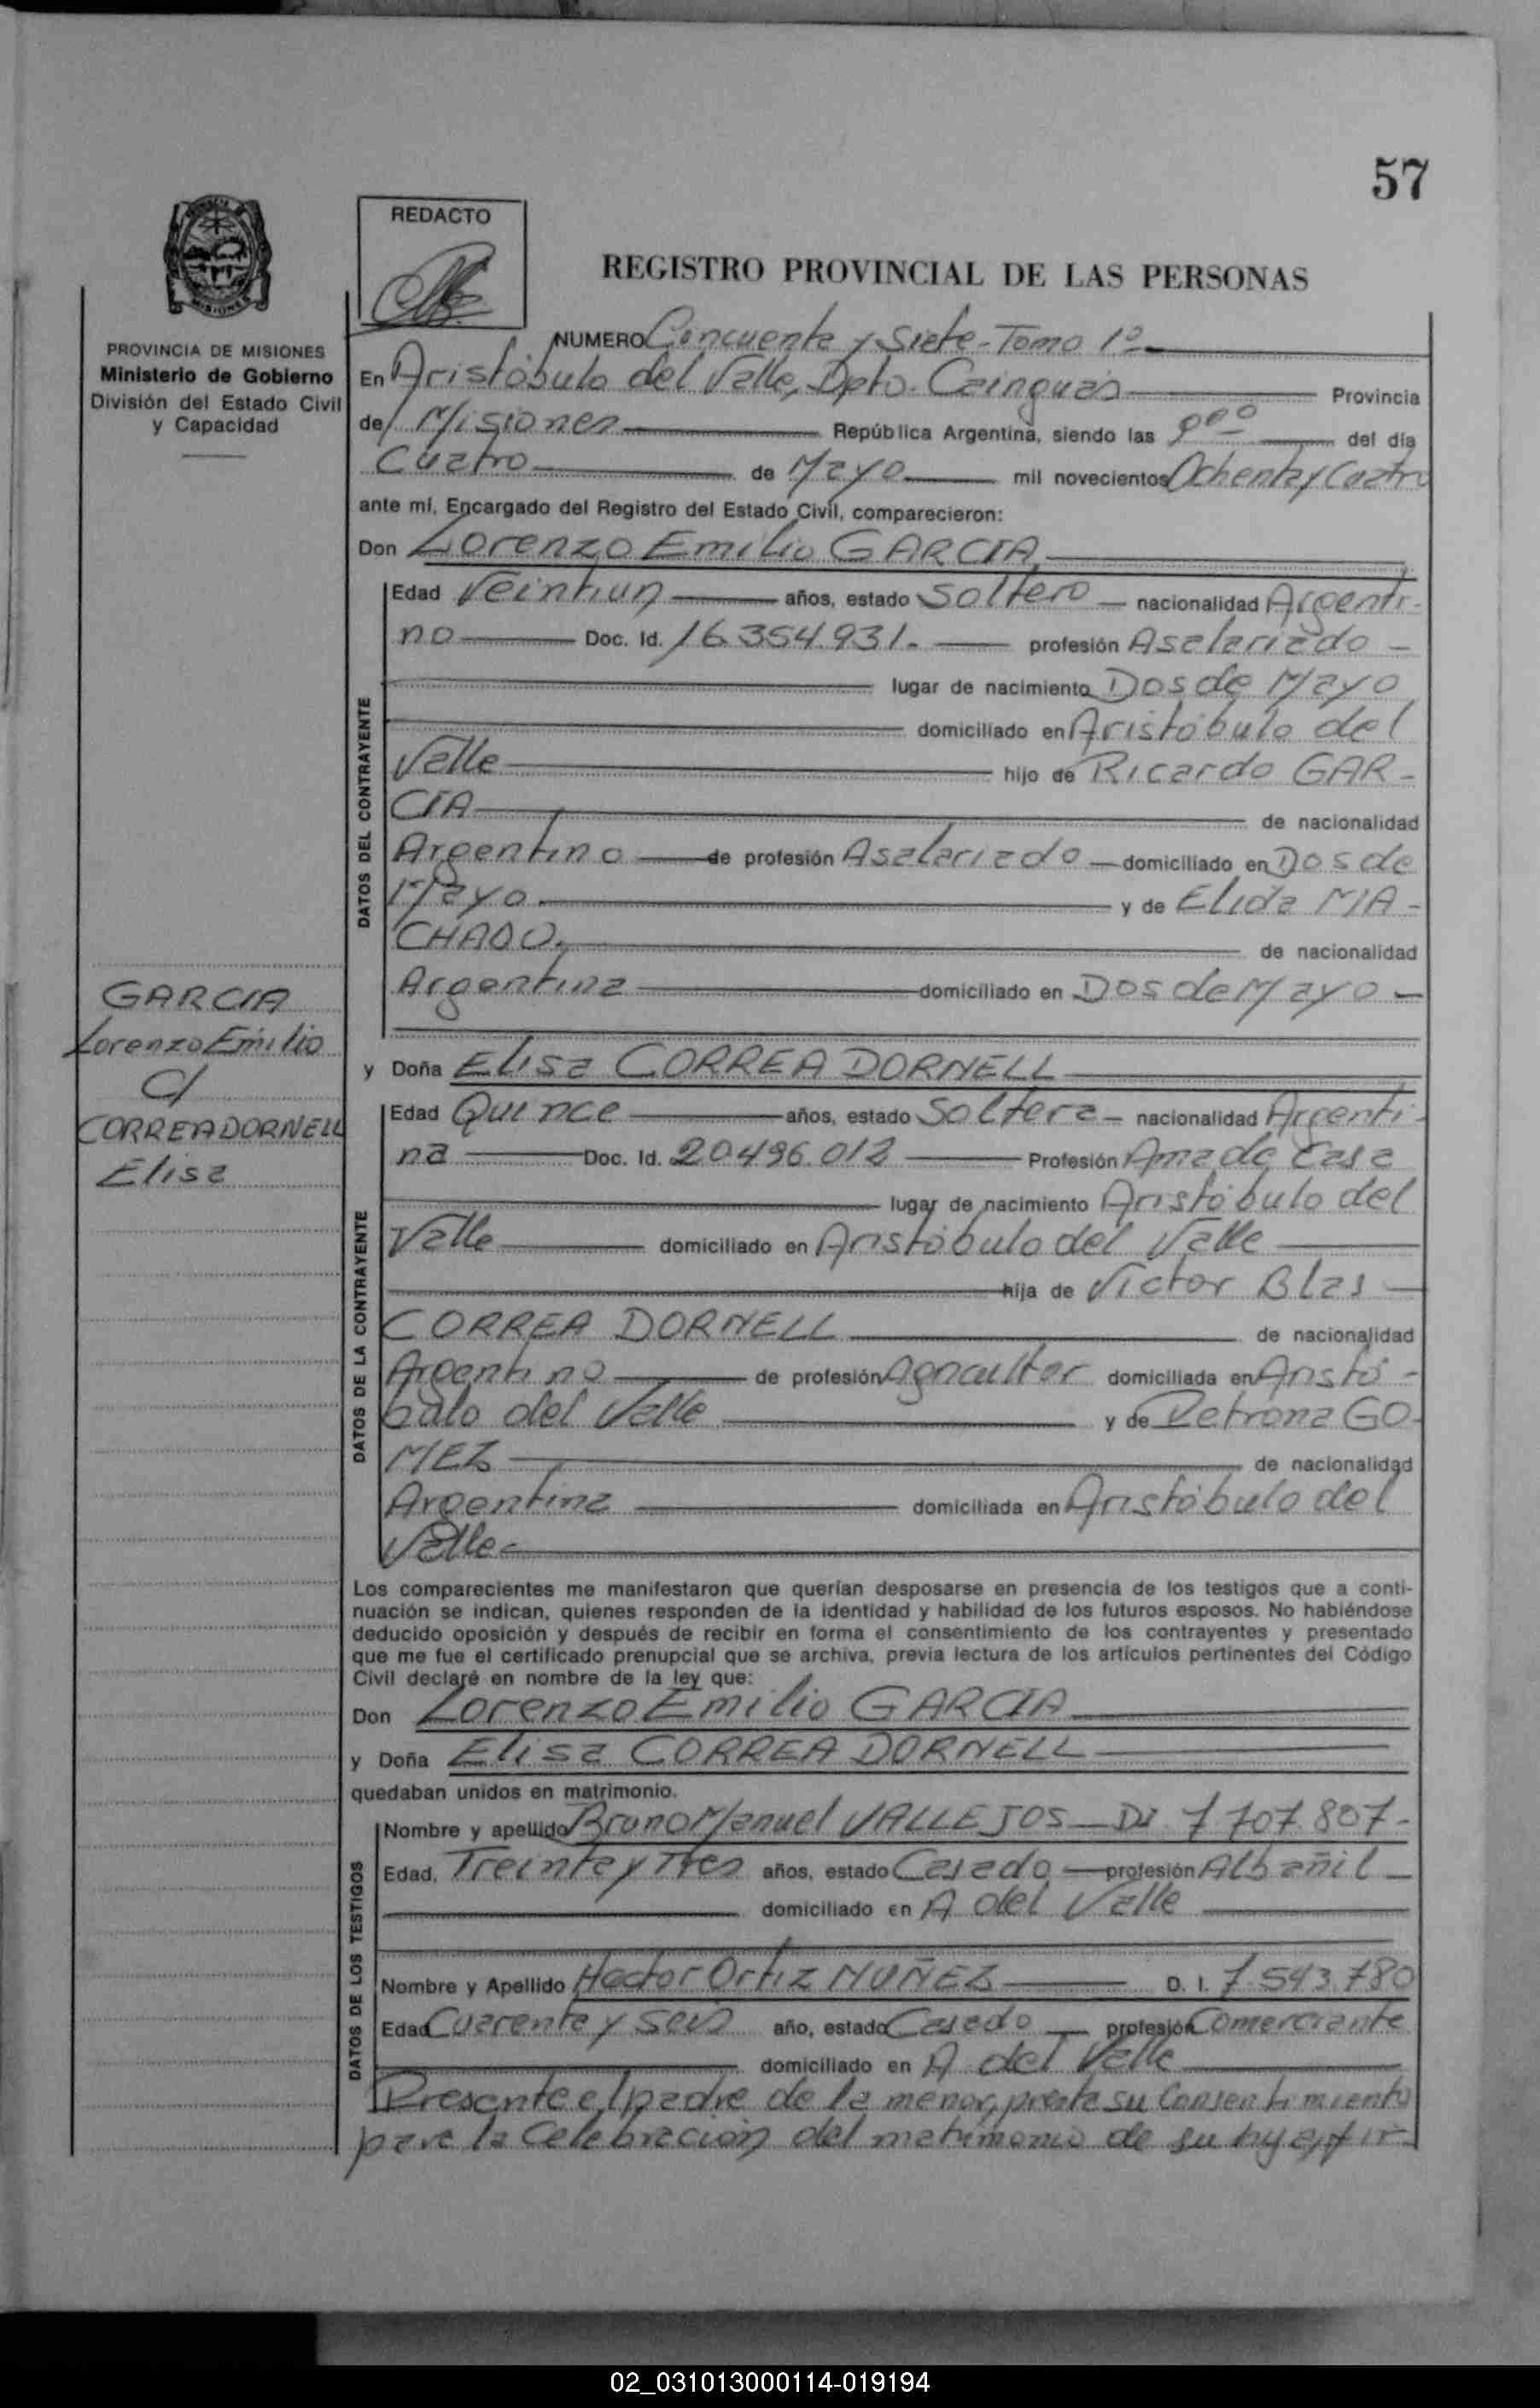 57
REDACTO
REGISTRO PROVINCIAL DE LAS PERSONAS
PROVINCIA DE MISIONES
Ministerio de Gobierno
División del Estado Civil
y Capacidad
NUMERO Cincuenta y Siete - Tomo 1º
En Aristóbulo del Valle, Dpto. Cainguás Provincia
de Misiones República Argentina, siendo las del día
Cuatro de Mayo mil novecientos Ochenta y Cuatro
ante mí, Encargado del Registro del Estado Civil, comparecieron:
Don Lorenzo Emilio GARCIA
DATOS DEL CONTRAYENTE
Edad Veintiun años, estado Soltero nacionalidad Argenti-
no Doc. Id. 16.354.931. profesión Asalariado
lugar de nacimiento Dos de Mayo
domiciliado en Aristóbulo del
Valle hijo de Ricardo GAR-
CIA de nacionalidad
Argentino de profesión Asalariado domiciliado en Dos de
Mayo y de Elida MA-
CHADO, de nacionalidad
Argentina domiciliado en Dos de Mayo
GARCIA
Lorenzo Emilio
C/
CORREA DORNELL
Elisa
y Doña Elisa CORREA DORNELL
DATOS DE LA CONTRAYENTE
Edad Quince años, estado Soltera nacionalidad Argenti-
na Doc. Id. 20.496.012 Profesión Ama de Casa
lugar de nacimiento Aristóbulo del
Valle domiciliado en Aristóbulo del Valle
hija de Victor Blas
CORREA DORNELL de nacionalidad
Argentino de profesión Agricultor domiciliada en Aristó-
bulo del Valle y de Petrona GO-
MEZ de nacionalidad
Argentina domiciliada en Aristóbulo del
Valle
Los comparecientes me manifestaron que querían desposarse en presencia de los testigos que a conti-
nuación se indican, quienes responden de la identidad y habilidad de los futuros esposos. No habiéndose
deducido oposición y después de recibir en forma el consentimiento de los contrayentes y presentado
que me fue el certificado prenupcial que se archiva, previa lectura de los artículos pertinentes del Código
Civil declaré en nombre de la ley que:
Don Lorenzo Emilio GARCIA
y Doña Elisa CORREA DORNELL
quedaban unidos en matrimonio.
DATOS DE LOS TESTIGOS
Nombre y apellido Bruno Manuel VALLEJOS DI 7 707.807-
Edad, Treinta y Tres años, estado Casado profesión Albañil
domiciliado en A del Valle
Nombre y Apellido Hector Ortiz NUÑEZ D. I. 7.543.780
Edad Cuarenta y Seis año, estado Casado profesión Comerciante
domiciliado en A del Valle
Presente el padre de la menor, presta su Consentimiento
para la Celebración del matrimonio de su hija, y fir-
02_031013000114-019194